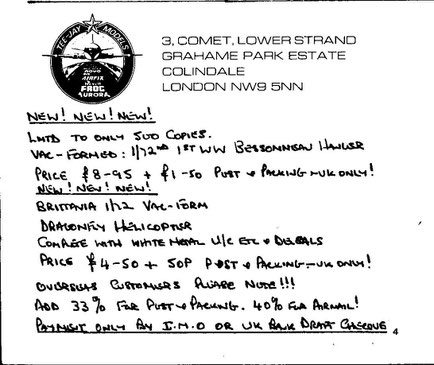 TEE-JAY MODELS
AIRFIX
FROG
AURORA
3, COMET, LOWER STRAND
GRAHAME PARK ESTATE
COLINDALE
LONDON NW9 5NN
NEW! NEW! NEW!
LMTD TO ONLY 500 COPIES.
VAC-FORMED: 1/72ND 1ST WW BESSONNEAU HANGER
PRICE £8-95 + £1-50 POST & PACKING-UK ONLY!
NEW! NEW! NEW!
BRITTANIA 1/72 VAC-FORM
DRAGONFLY HELICOPTER
COMPLETE WITH WHITE METAL U/C ETC & DECALS
PRICE £4-50 + 50P POST & PACKING-UK ONLY!
OVERSEAS CUSTOMERS PLEASE NOTE!!!
ADD 33% FOR POST & PACKING. 40% FOR AIRMAIL!
PAYMENT ONLY BY I.M.O OR UK BANK DRAFT CHEQUE
4